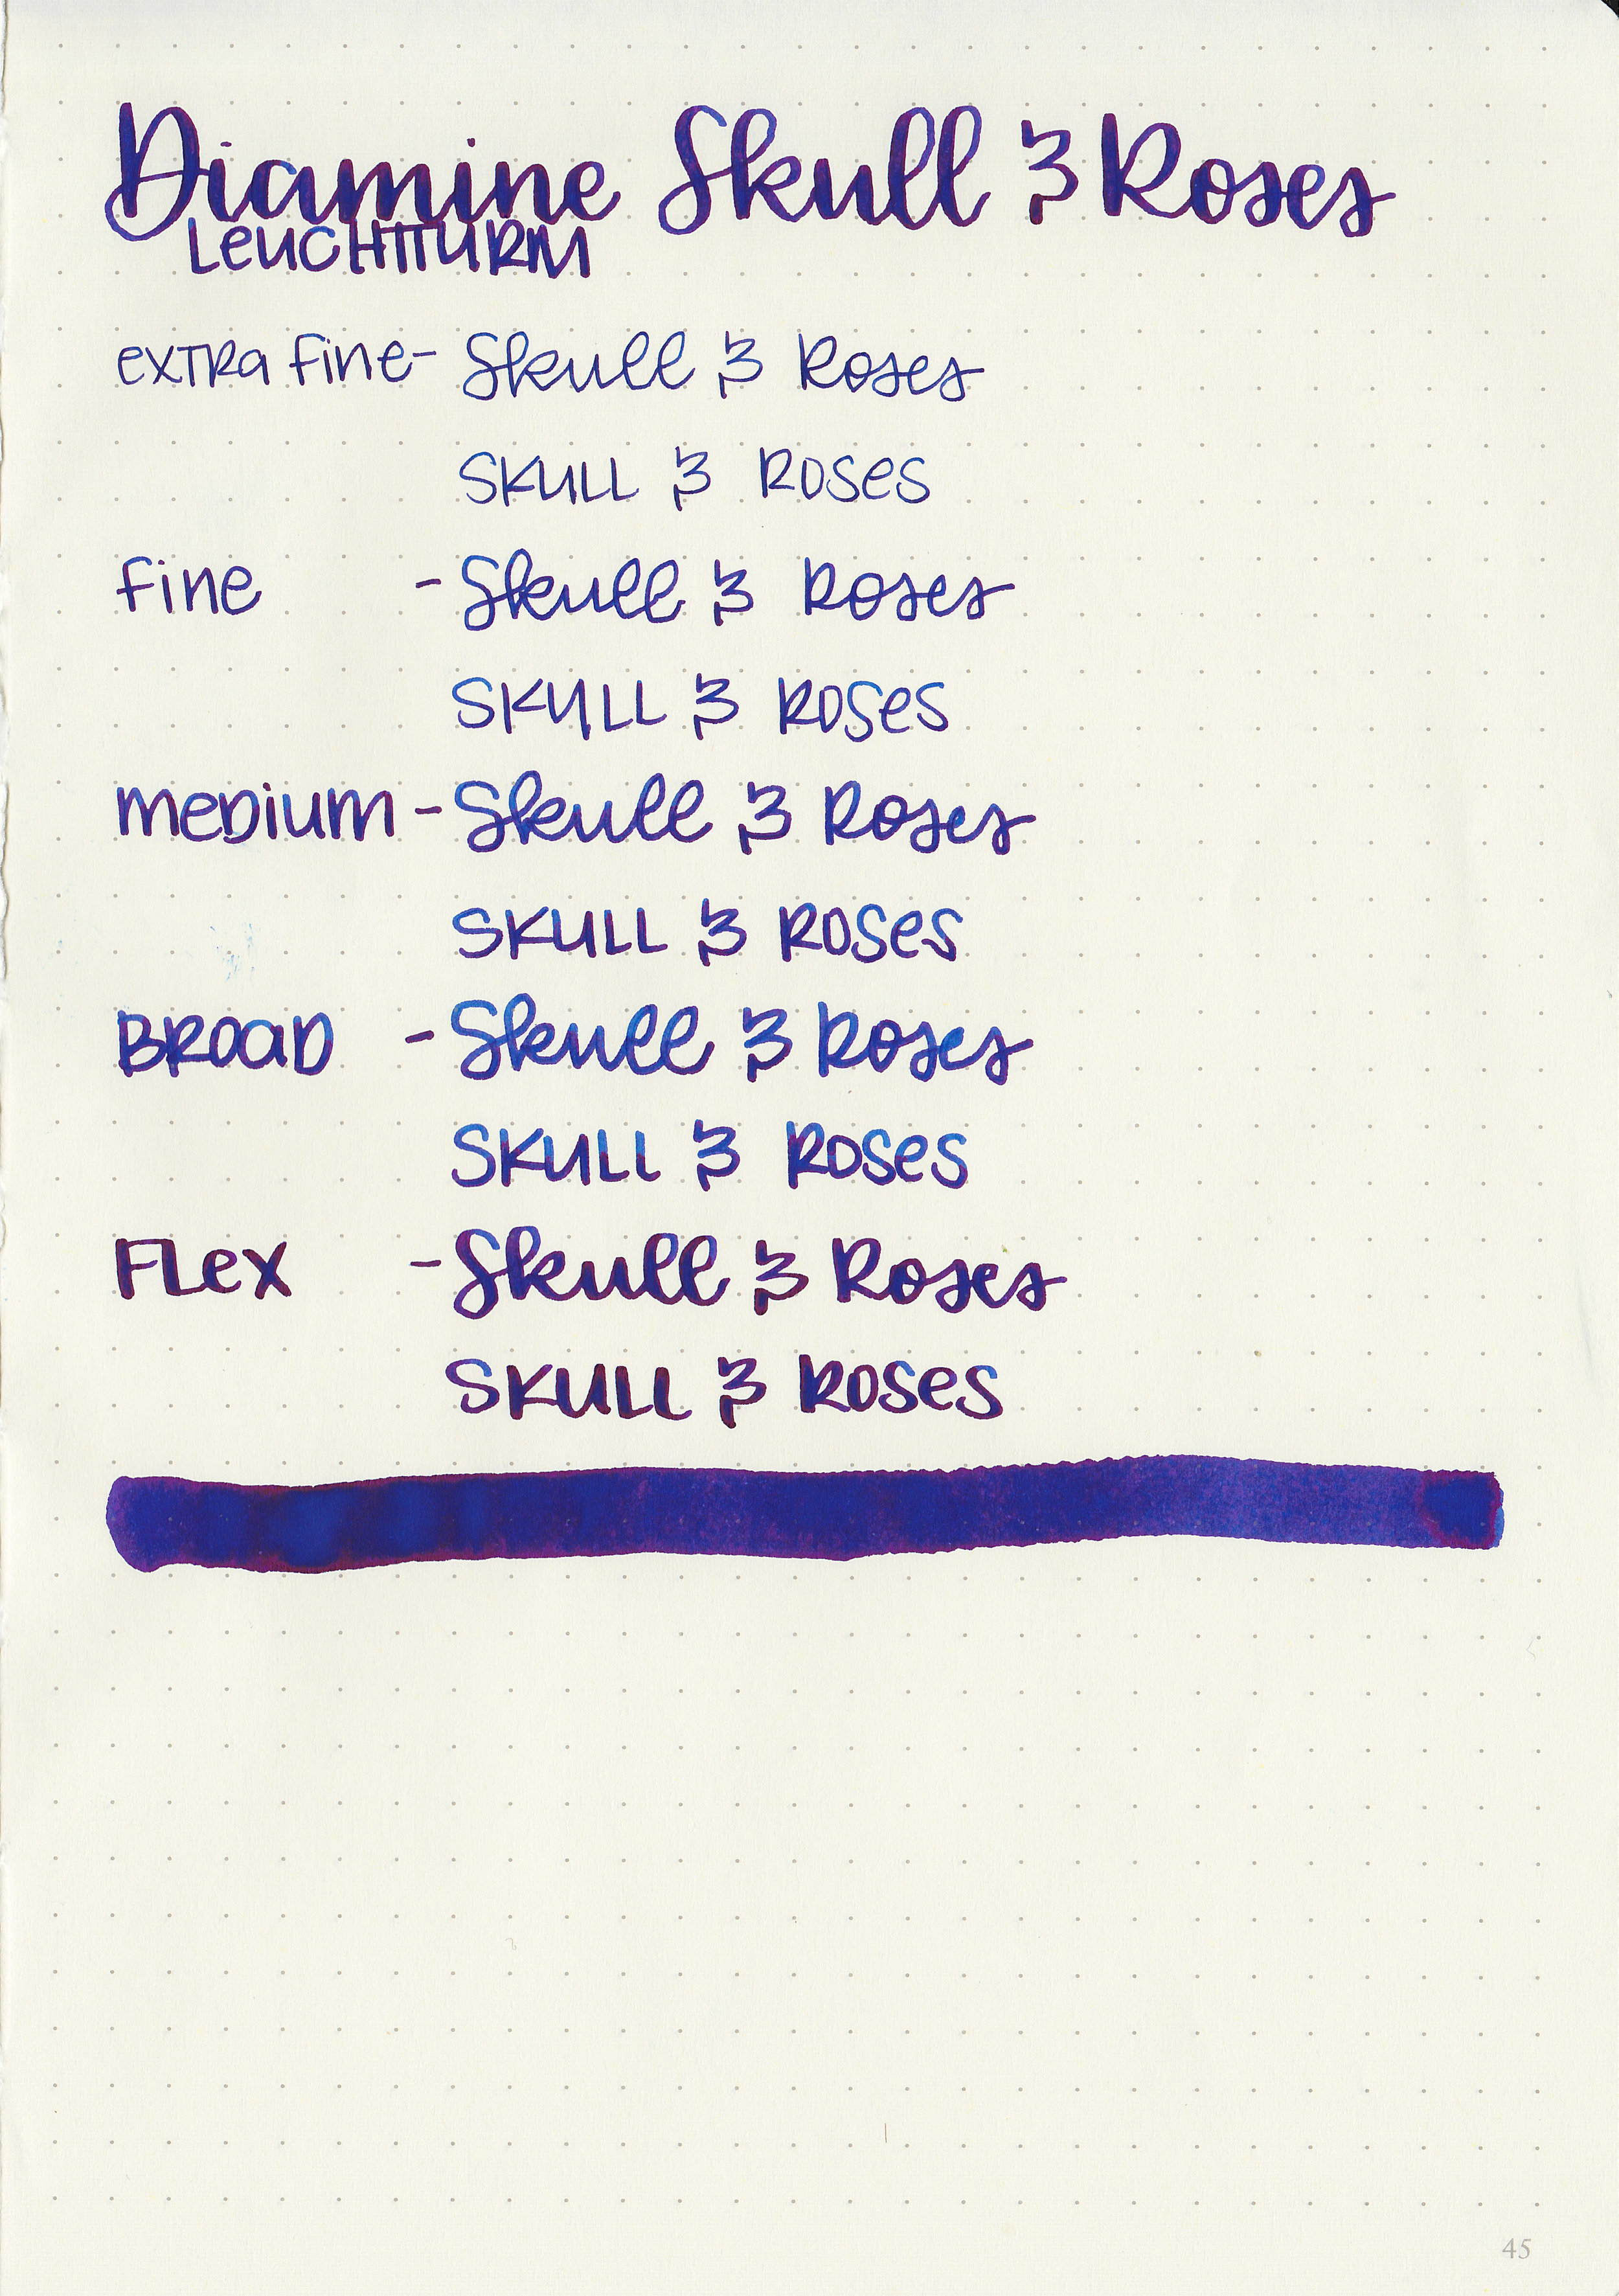 Diamine Skull & Roses
Leuchtturm
extra fine - Skull & Roses
Skull & Roses
fine - Skull & Roses
Skull & Roses
medium - Skull & Roses
Skull & Roses
Broad - Skull & Roses
Skull & Roses
Flex - Skull & Roses
Skull & Roses
45